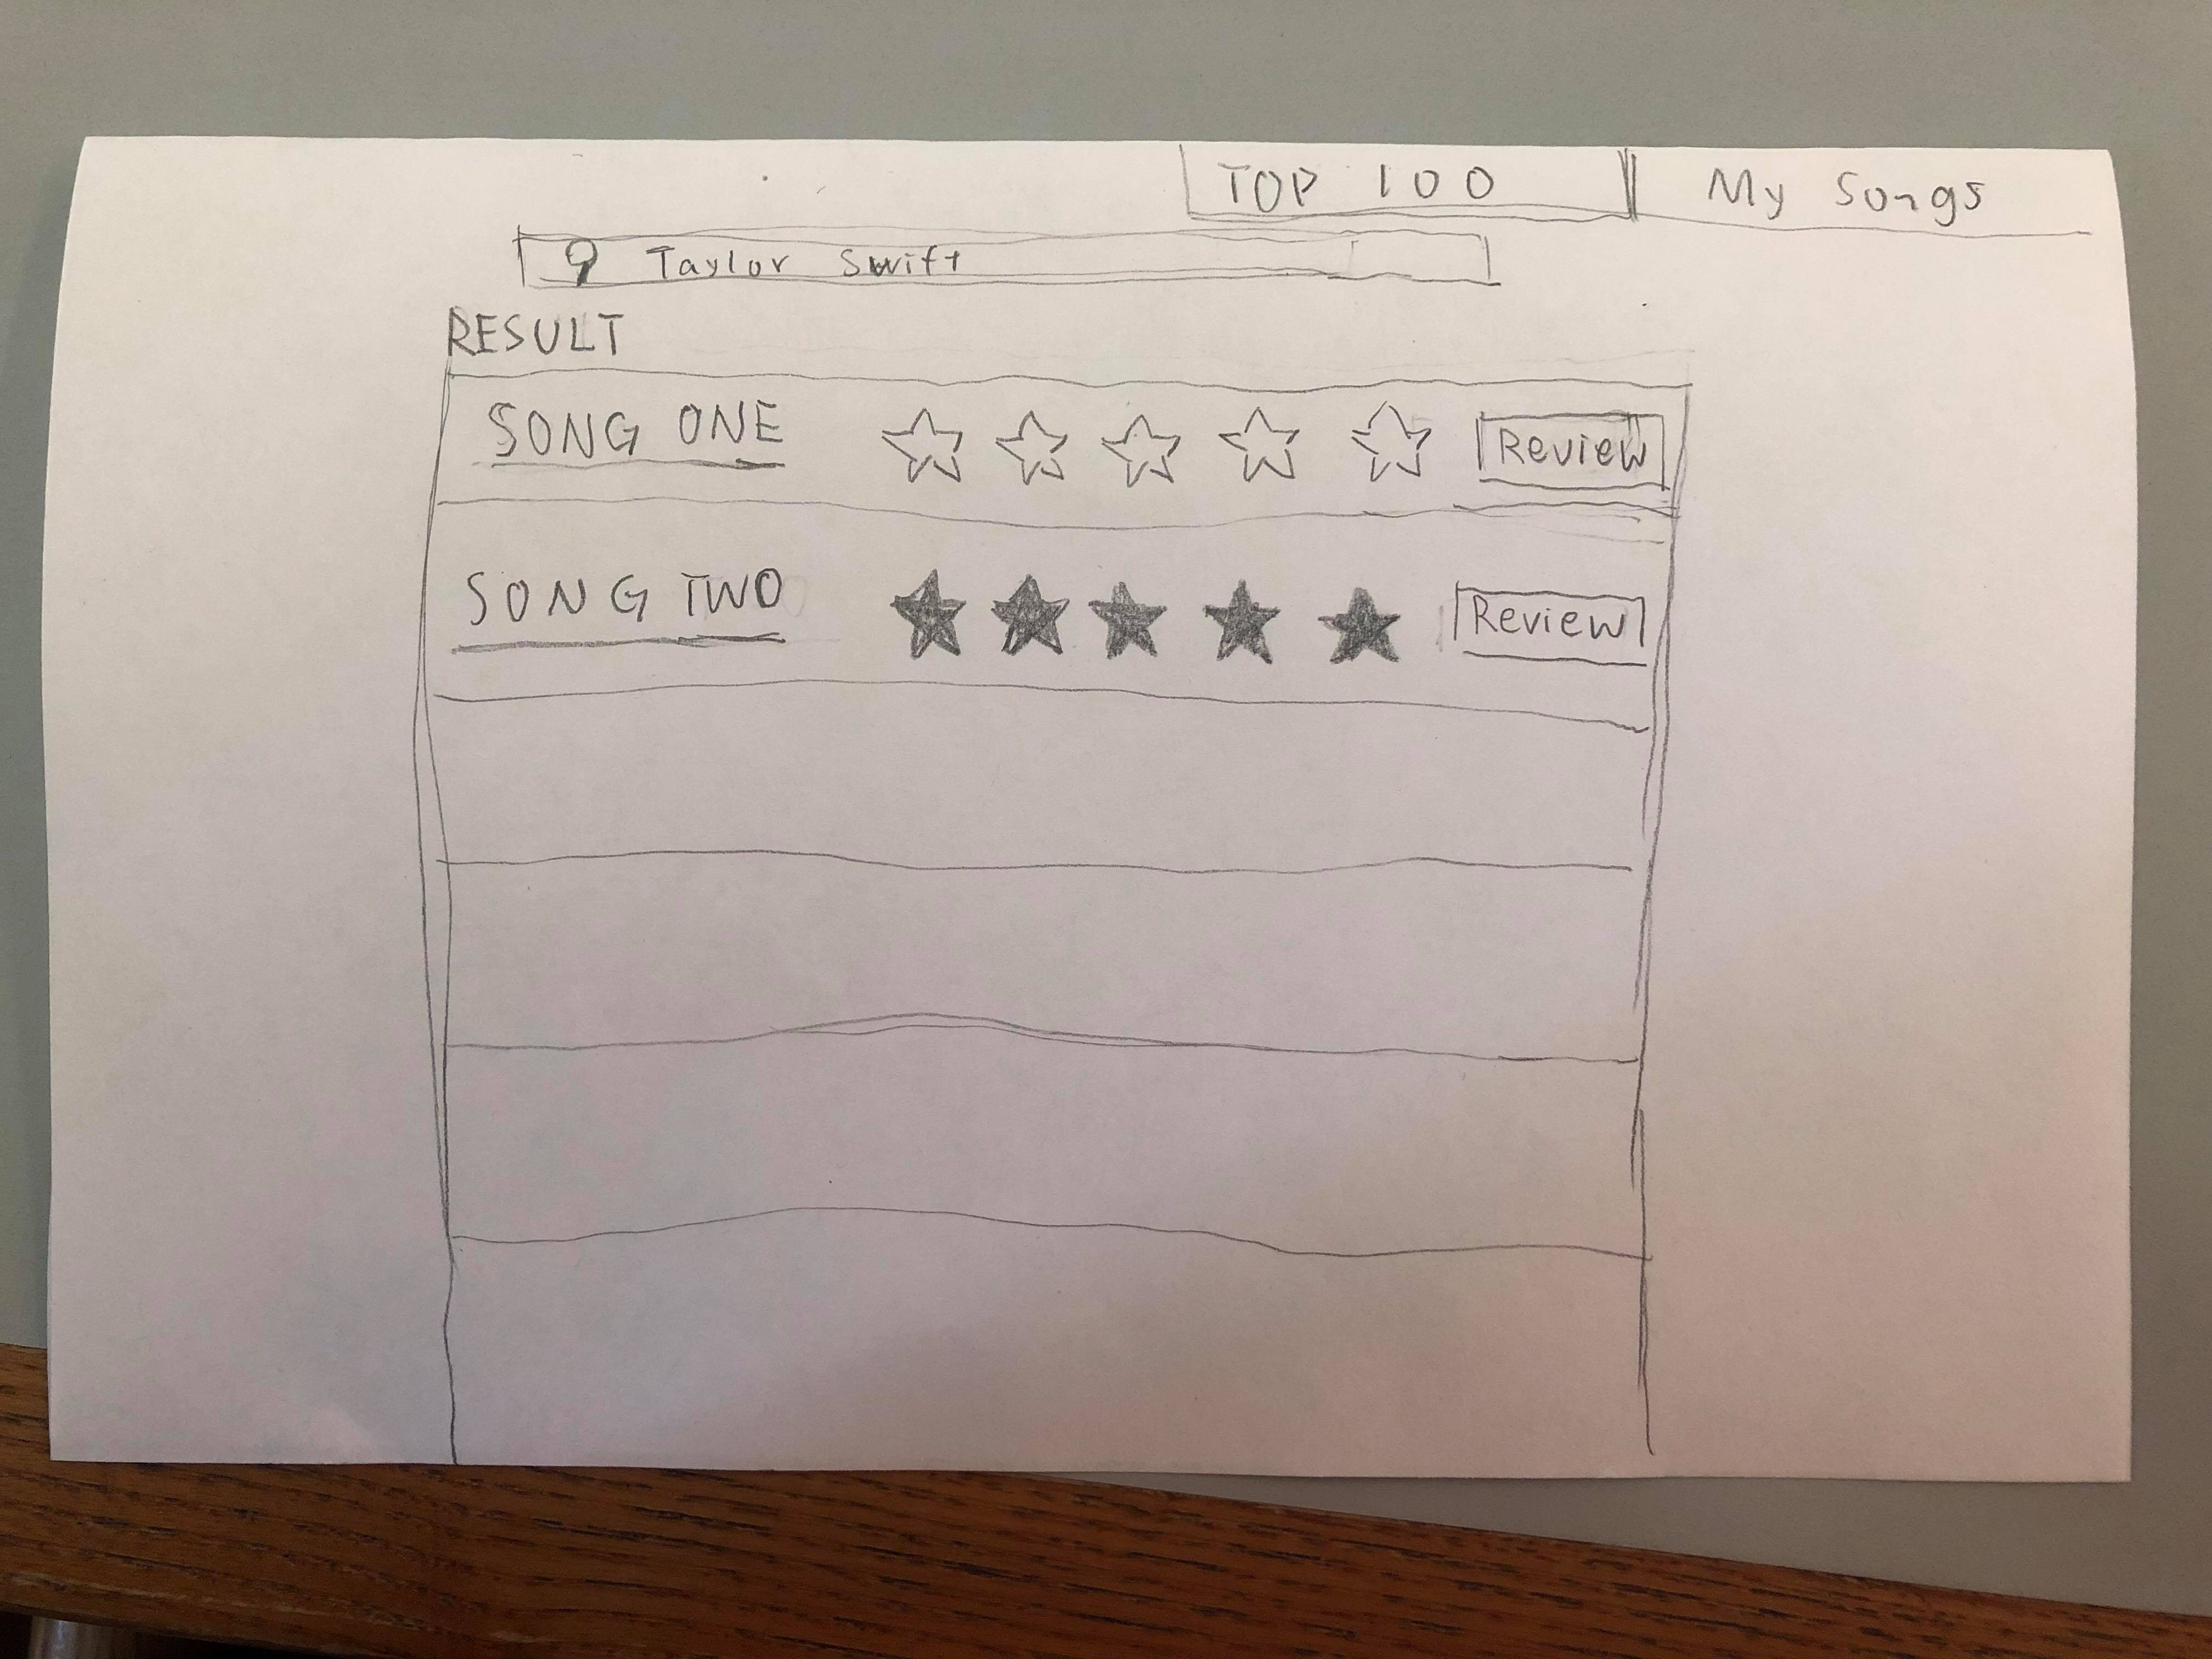 TOP 100 My Songs
Taylor Swift
RESULT
SONG ONE Review
SONG TWO Review